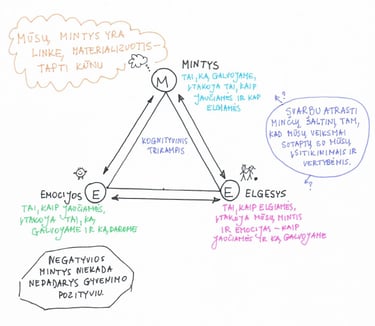 MŪSŲ MINTYS YRA
LINKĘ MATERIALIZUOTIS-
TAPTI KŪNU
MINTYS
M
TAI, KĄ GALVOJAME,
ĮTAKOJA TAI, KAIP
JAUČIAMĖS IR KAIP
ELGIAMĖS
KOGNITYVINIS
TRIKAMPIS
SVARBU ATRASTI
MINČIŲ ŠALTINĮ TAM,
KAD MŪSŲ VEIKSMAI
SUTAPTŲ SU MŪSŲ
ĮSITIKINIMAIS IR
VERTYBĖMIS.
EMOCIJOS
E
TAI, KAIP JAUČIAMĖS,
ĮTAKOJA TAI, KĄ
GALVOJAME IR KĄ DAROME
E
ELGESYS
TAI, KAIP ELGIAMĖS,
ĮTAKOJA MŪSŲ MINTIS
IR EMOCIJAS - KAIP
JAUČIAMĖS IR KĄ GALVOJAME
NEGATYVIOS
MINTYS NIEKADA
NEPADARYS GYVENIMO
POZITYVIU.